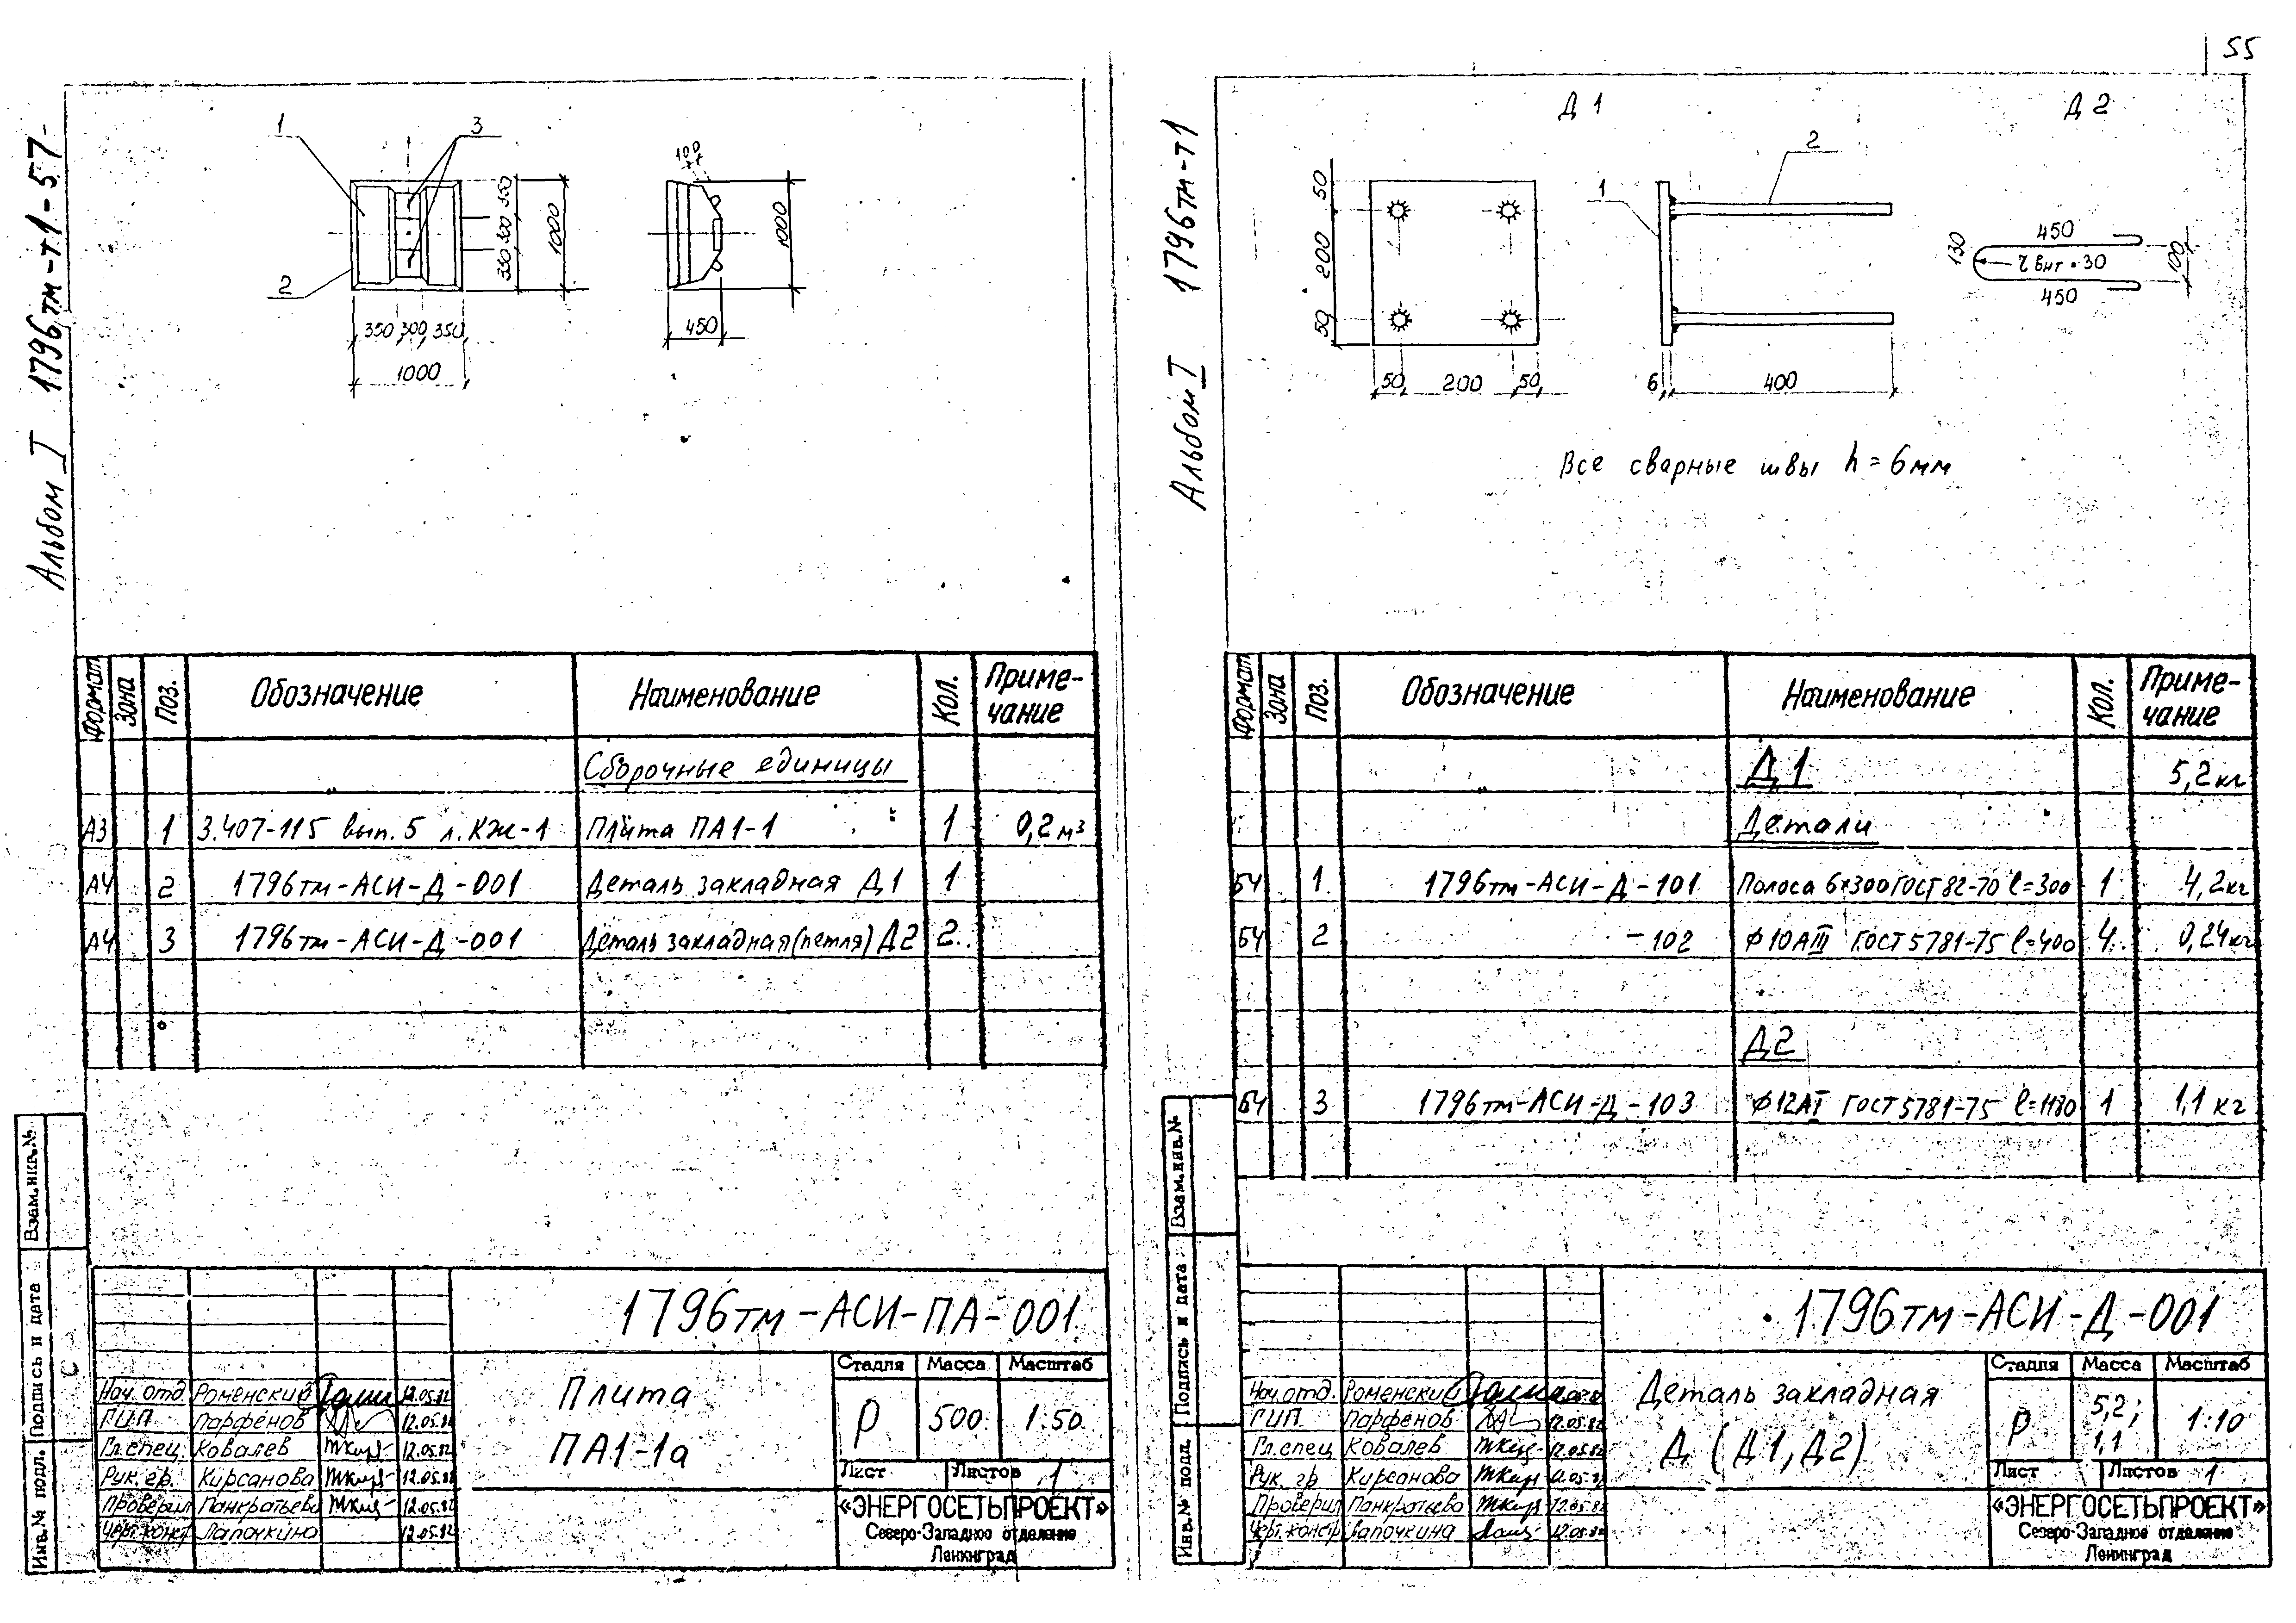 55
Альбом I 1796тм-т1-57
1
3
2
100
350
300
350
1000
1000
350 300 350
1000
450
Формат Зона Поз. Обозначение Наименование Кол. Приме-
чание
Сборочные единицы
А3 1 3.407-115 вып. 5 л. КЖ-1 Плита ПА1-1 1 0,2 м³
А4 2 1796тм-АСИ-Д-001 Деталь закладная Д1 1
А4 3 1796тм-АСИ-Д-001 Деталь закладная (петля) Д2 2
Взам.инв.№
Подпись и дата
Инв.№ подл.
1796тм-АСИ-ПА-001
Плита
ПА1-1а
Стадия Масса Масштаб
Р 500 1:50
Лист Листов 1
«ЭНЕРГОСЕТЬПРОЕКТ»
Северо-Западное отделение
Ленинград
Нач.отд. Роменский 12.05.82
ГИП Парфенов 12.05.82
Гл.спец Ковалев 12.05.82
Рук.гр. Кирсанова 12.05.82
Проверил Панкратьева 12.05.82
Черт.констр Лапочкина 12.05.82
Альбом I 1796тм-т1
Д1 Д2
50
200
50
50 200 50
1
2
6 400
130
450
r внт = 30
450
100
Все сварные швы h = 6мм
Формат Зона Поз. Обозначение Наименование Кол. Приме-
чание
Д1 5,2кг
Детали
БЧ 1 1796тм-АСИ-Д-101 Полоса 6×300 ГОСТ 82-70 ℓ=300 1 4,2кг
БЧ 2 -102 Ф10АIII ГОСТ 5781-75 ℓ=400 4 0,24кг
Д2
БЧ 3 1796тм-АСИ-Д-103 Ф12АI ГОСТ 5781-75 ℓ=1180 1 1,1 кг
Взам.инв.№
Подпись и дата
Инв.№ подл.
1796тм-АСИ-Д-001
Деталь закладная
Д (Д1, Д2)
Стадия Масса Масштаб
Р 5,2; 1,1 1:10
Лист Листов 1
«ЭНЕРГОСЕТЬПРОЕКТ»
Северо-Западное отделение
Ленинград
Нач.отд. Роменский
ГИП Парфенов 12.05.82
Гл.спец Ковалев 12.05.82
Рук. гр Кирсанова
Проверил Панкратьева 12.05.82
Черт.констр Лапочкина 12.05.82